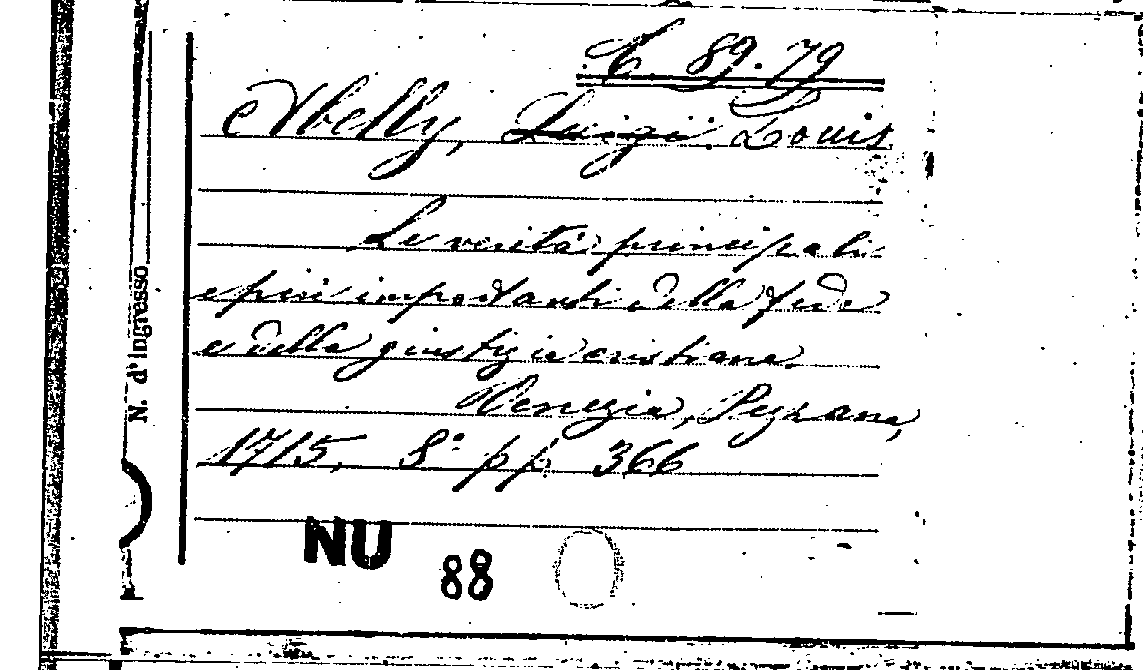 C. 89. 79
Abelly, Luigi Louis
Le verità principali
e più importanti della fede
e della giustizia cristiana.
Venezia, Pezzana,
1715, 8° pp. 366
NU
88
N. d'Ingresso